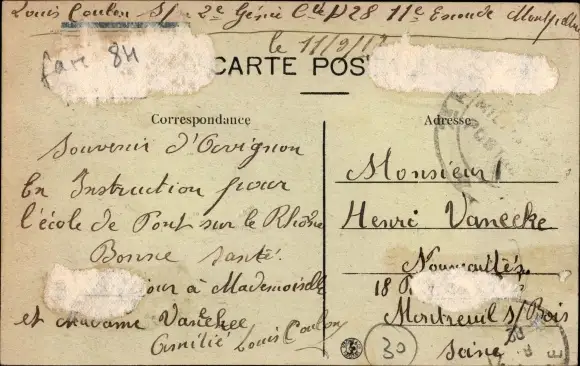 Louis Coulon S/ 2e Génie Cie D28 11e Escouade Montpellier
le 11/9/17
fare 84
CARTE POS
Correspondance
Adresse
Souvenir d'Avignon
En Instruction pour
l'école de Pont sur le Rhône
Bonne santé.
jour à Mademoiselle
et Madame Vaneckee
Amitié Louis Coulon
Monsieur
Henri Vanecke
Nouveautés
18
Montreuil s/Bois
Seine
30